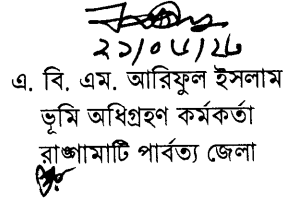 ২১/০৫/২৮
এ. বি. এম. আরিফুল ইসলাম
ভূমি অধিগ্রহণ কর্মকর্তা
রাঙ্গামাটি পার্বত্য জেলা